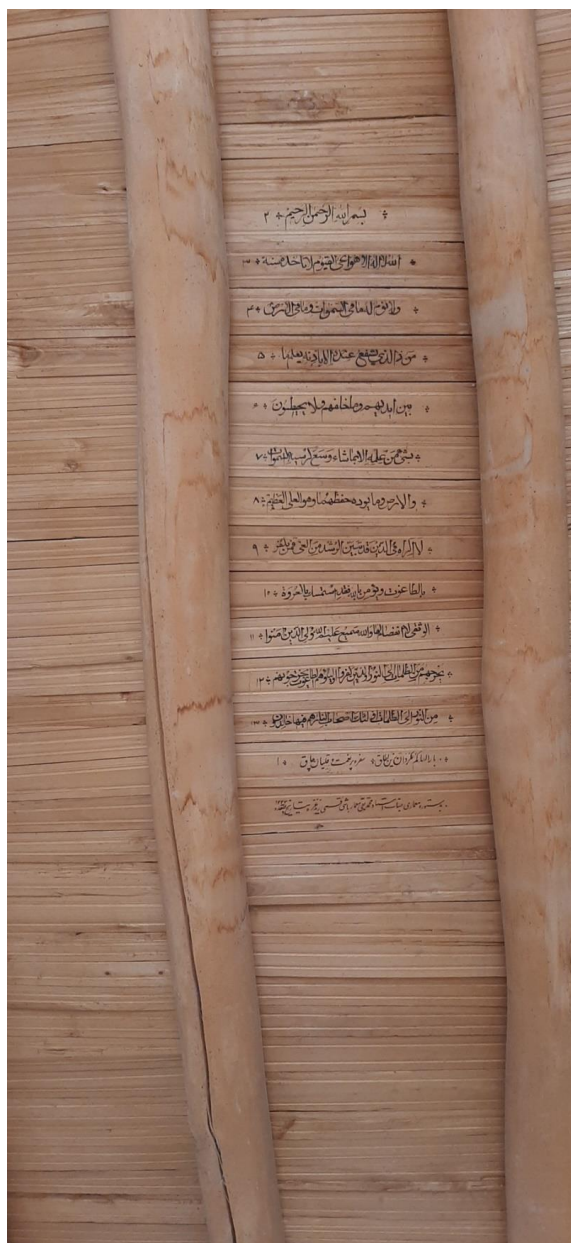 ÷ بسم الله الرحمن الرحیم ÷ ۲
* الله لا اله الا هو الحی القیوم لا تاخذه سنة ÷ ۳
÷ ولا نوم له ما فی السموات وما فی الارض ÷ ۴
من ذا الذی یشفع عنده الا باذنه یعلم ما ۵
÷ بین ایدیهم وما خلفهم ولا یحیطون ÷ ۶
÷ بشیء من علمه الا بما شاء وسع کرسیه السموات ÷ ۷
÷ والارض وما یوده حفظهما وهو العلی العظیم ÷ ۸
لا اکراه فی الدین قد تبین الرشد من الغی فمن یکفر ÷ ۹
÷ بالطاغوت ویؤمن بالله فقد استمسک بالعروة ÷ ۱۰
الوثقی لا انفصام لها والله سمیع علیم الله ولی الذین آمنوا ÷ ۱۱
÷ یخرجهم من الظلمات الی النور والذین کفروا اولیاوهم الطاغوت یخرجونهم ÷ ۱۲
÷ من النور الی الظلمات اولئک اصحاب النار هم فیها خالدون ÷ ۱۳